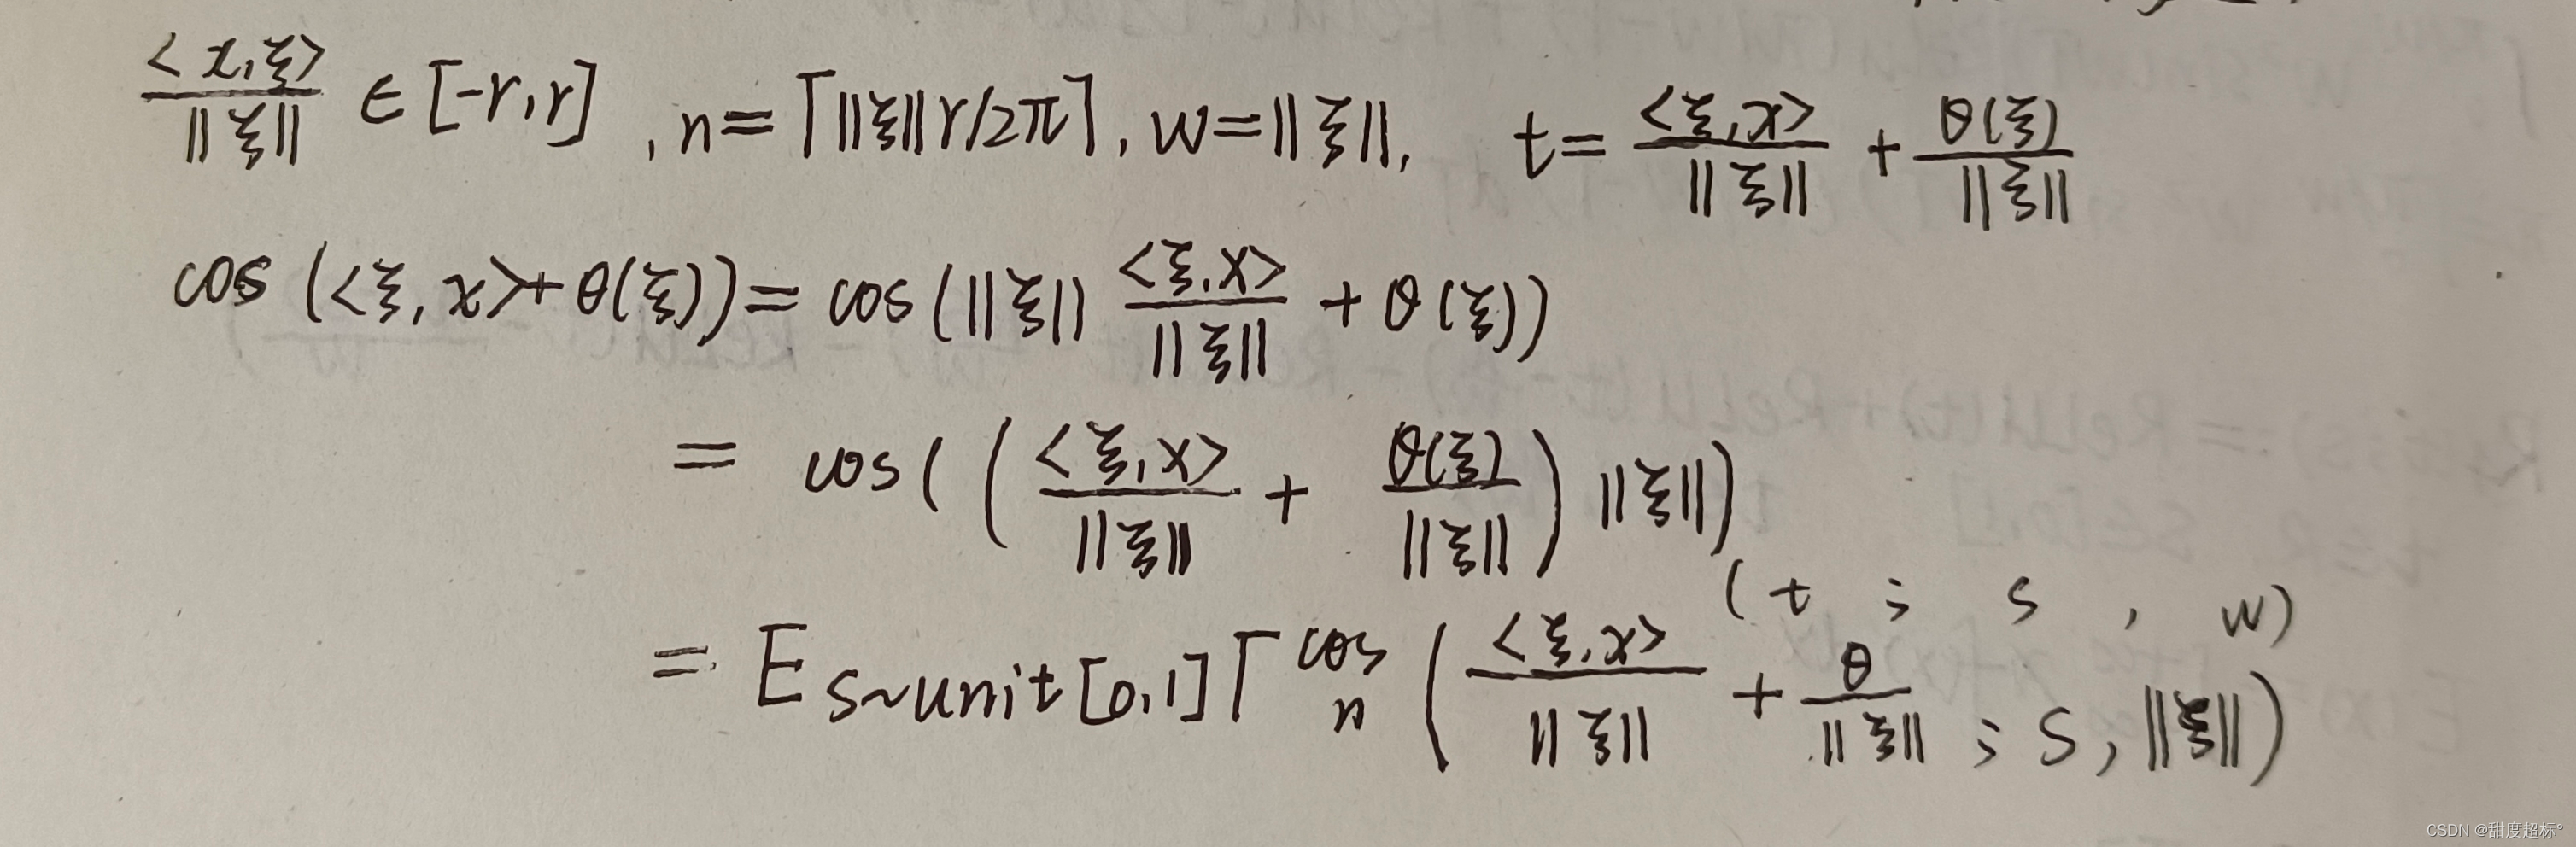 <x,ξ>/||ξ|| ∈ [-r,r], n=⌈||ξ||r/2π⌉, w=||ξ||, t= <ξ,x>/||ξ|| + θ(ξ)/||ξ||
cos(<ξ,x>+θ(ξ)) = cos(||ξ|| <ξ,x>/||ξ|| + θ(ξ))
= cos((<ξ,x>/||ξ|| + θ(ξ)/||ξ||) ||ξ||)
(t ; s , w)
= E_{s~unit[0,1]} Γ_n^{cos} (<ξ,x>/||ξ|| + θ/||ξ|| ; s, ||ξ||)
CSDN @甜度超标°